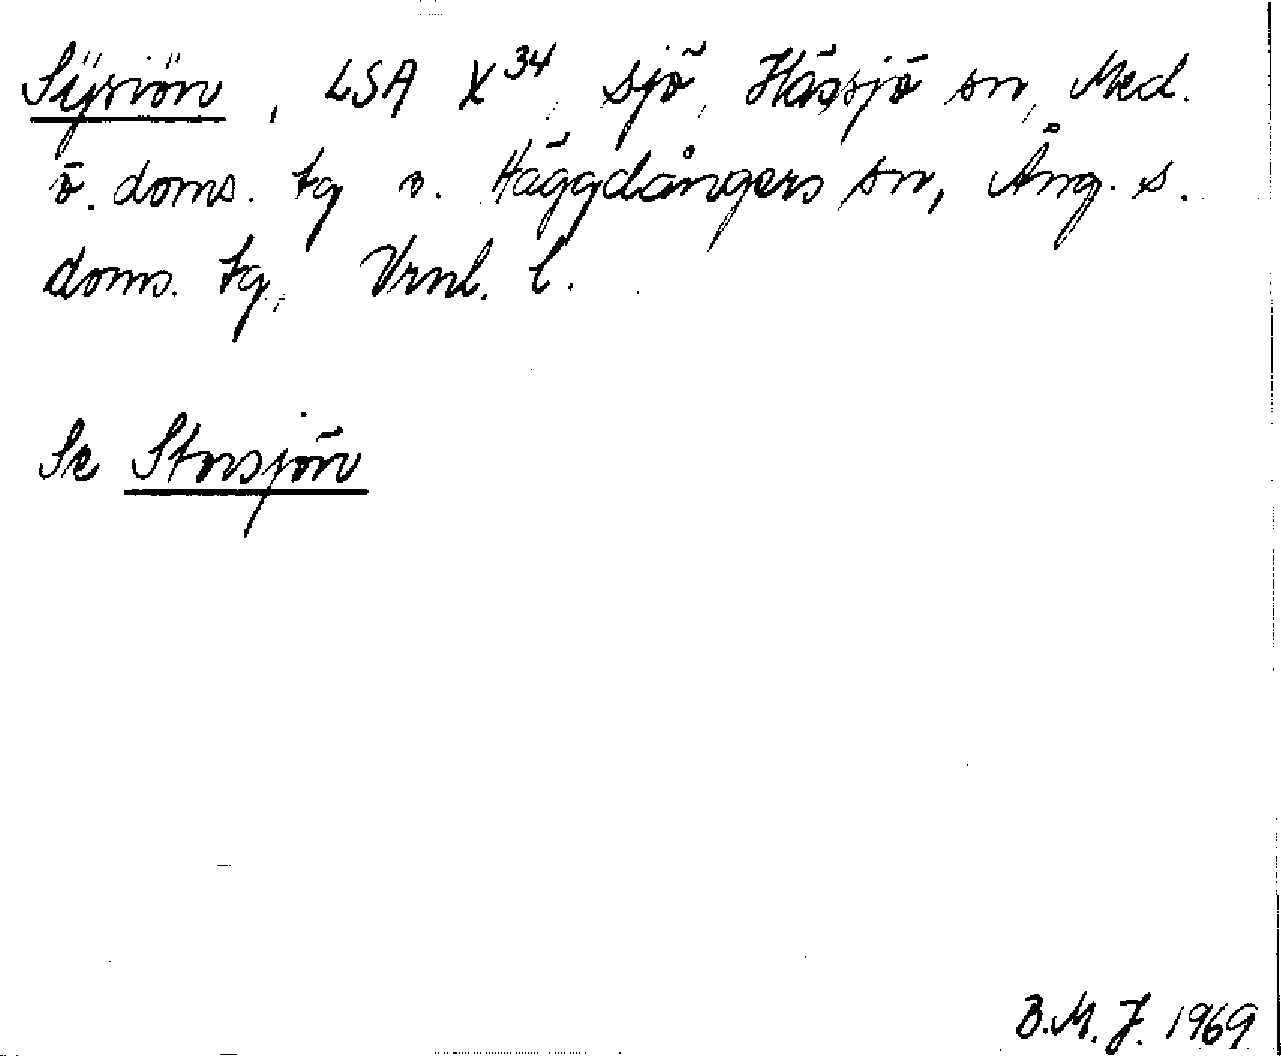 Sÿsiön, LSA X³⁴, sjö, Hässjö sn, Med.
ö. doms. tg o. Häggdångers sn, Ång. s.
doms. tg, Vrnl. l.
Se Storsjön
B.M.J. 1969